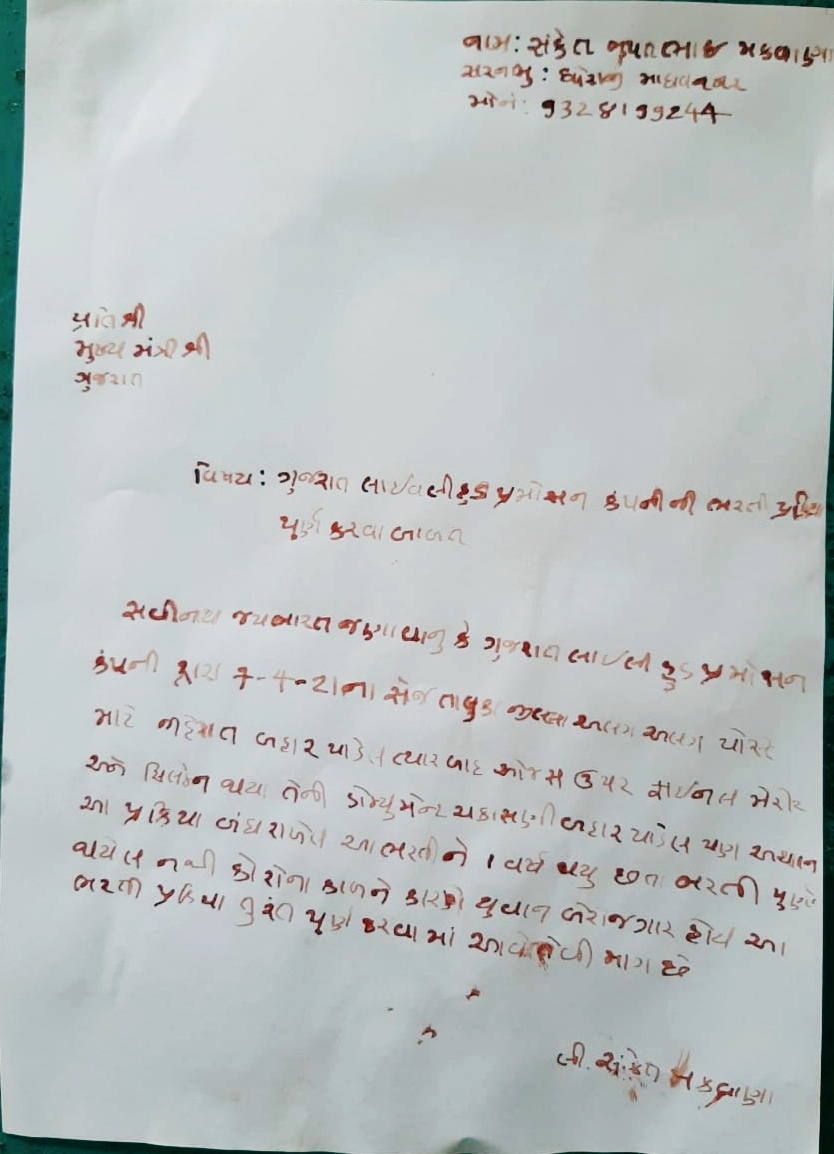 નામ: સંકેત જયંતભાઇ મકવાણા
સરનામુ: ધોરાજી માધવનગર
મો નં: 9328199244
પ્રતિ શ્રી
મુખ્ય મંત્રી શ્રી
ગુજરાત
વિષય: ગુજરાત લાઈવલીહુડ પ્રમોસન કંપની ની ભરતી પ્રક્રિયા
પુર્ણ કરવા બાબત
સવીનય જયભારત જણાવાનુ કે ગુજરાત લાઈલી હુડ પ્રમોસન
કંપની દ્વારા 7-4-21 ના રોજ તાલુકા જીલ્લા અલગ અલગ પોસ્ટ
માટે જાહેરાત બહાર પાડેલ ત્યાર બાદ ઓજસ ઉપર ફાઈનલ મેરીટ
અને સિલેક્શન થયા તેની ડોક્યુમેન્ટ ચકાસણી બહાર પાડેલ પણ અચાન
આ પ્રક્રિયા બંધ રાખેલ આ ભરતી ને 1 વર્ષ થયુ છતા ભરતી પુર્ણ
થયેલ નથી કોરોના કાળ ને કારણે યુવાન બેરોજગાર હોય આ
ભરતી પ્રક્રિયા તુરંત પુર્ણ કરવા માં આવે તેવી માગ છે
લી. સંકેત મકવાણા